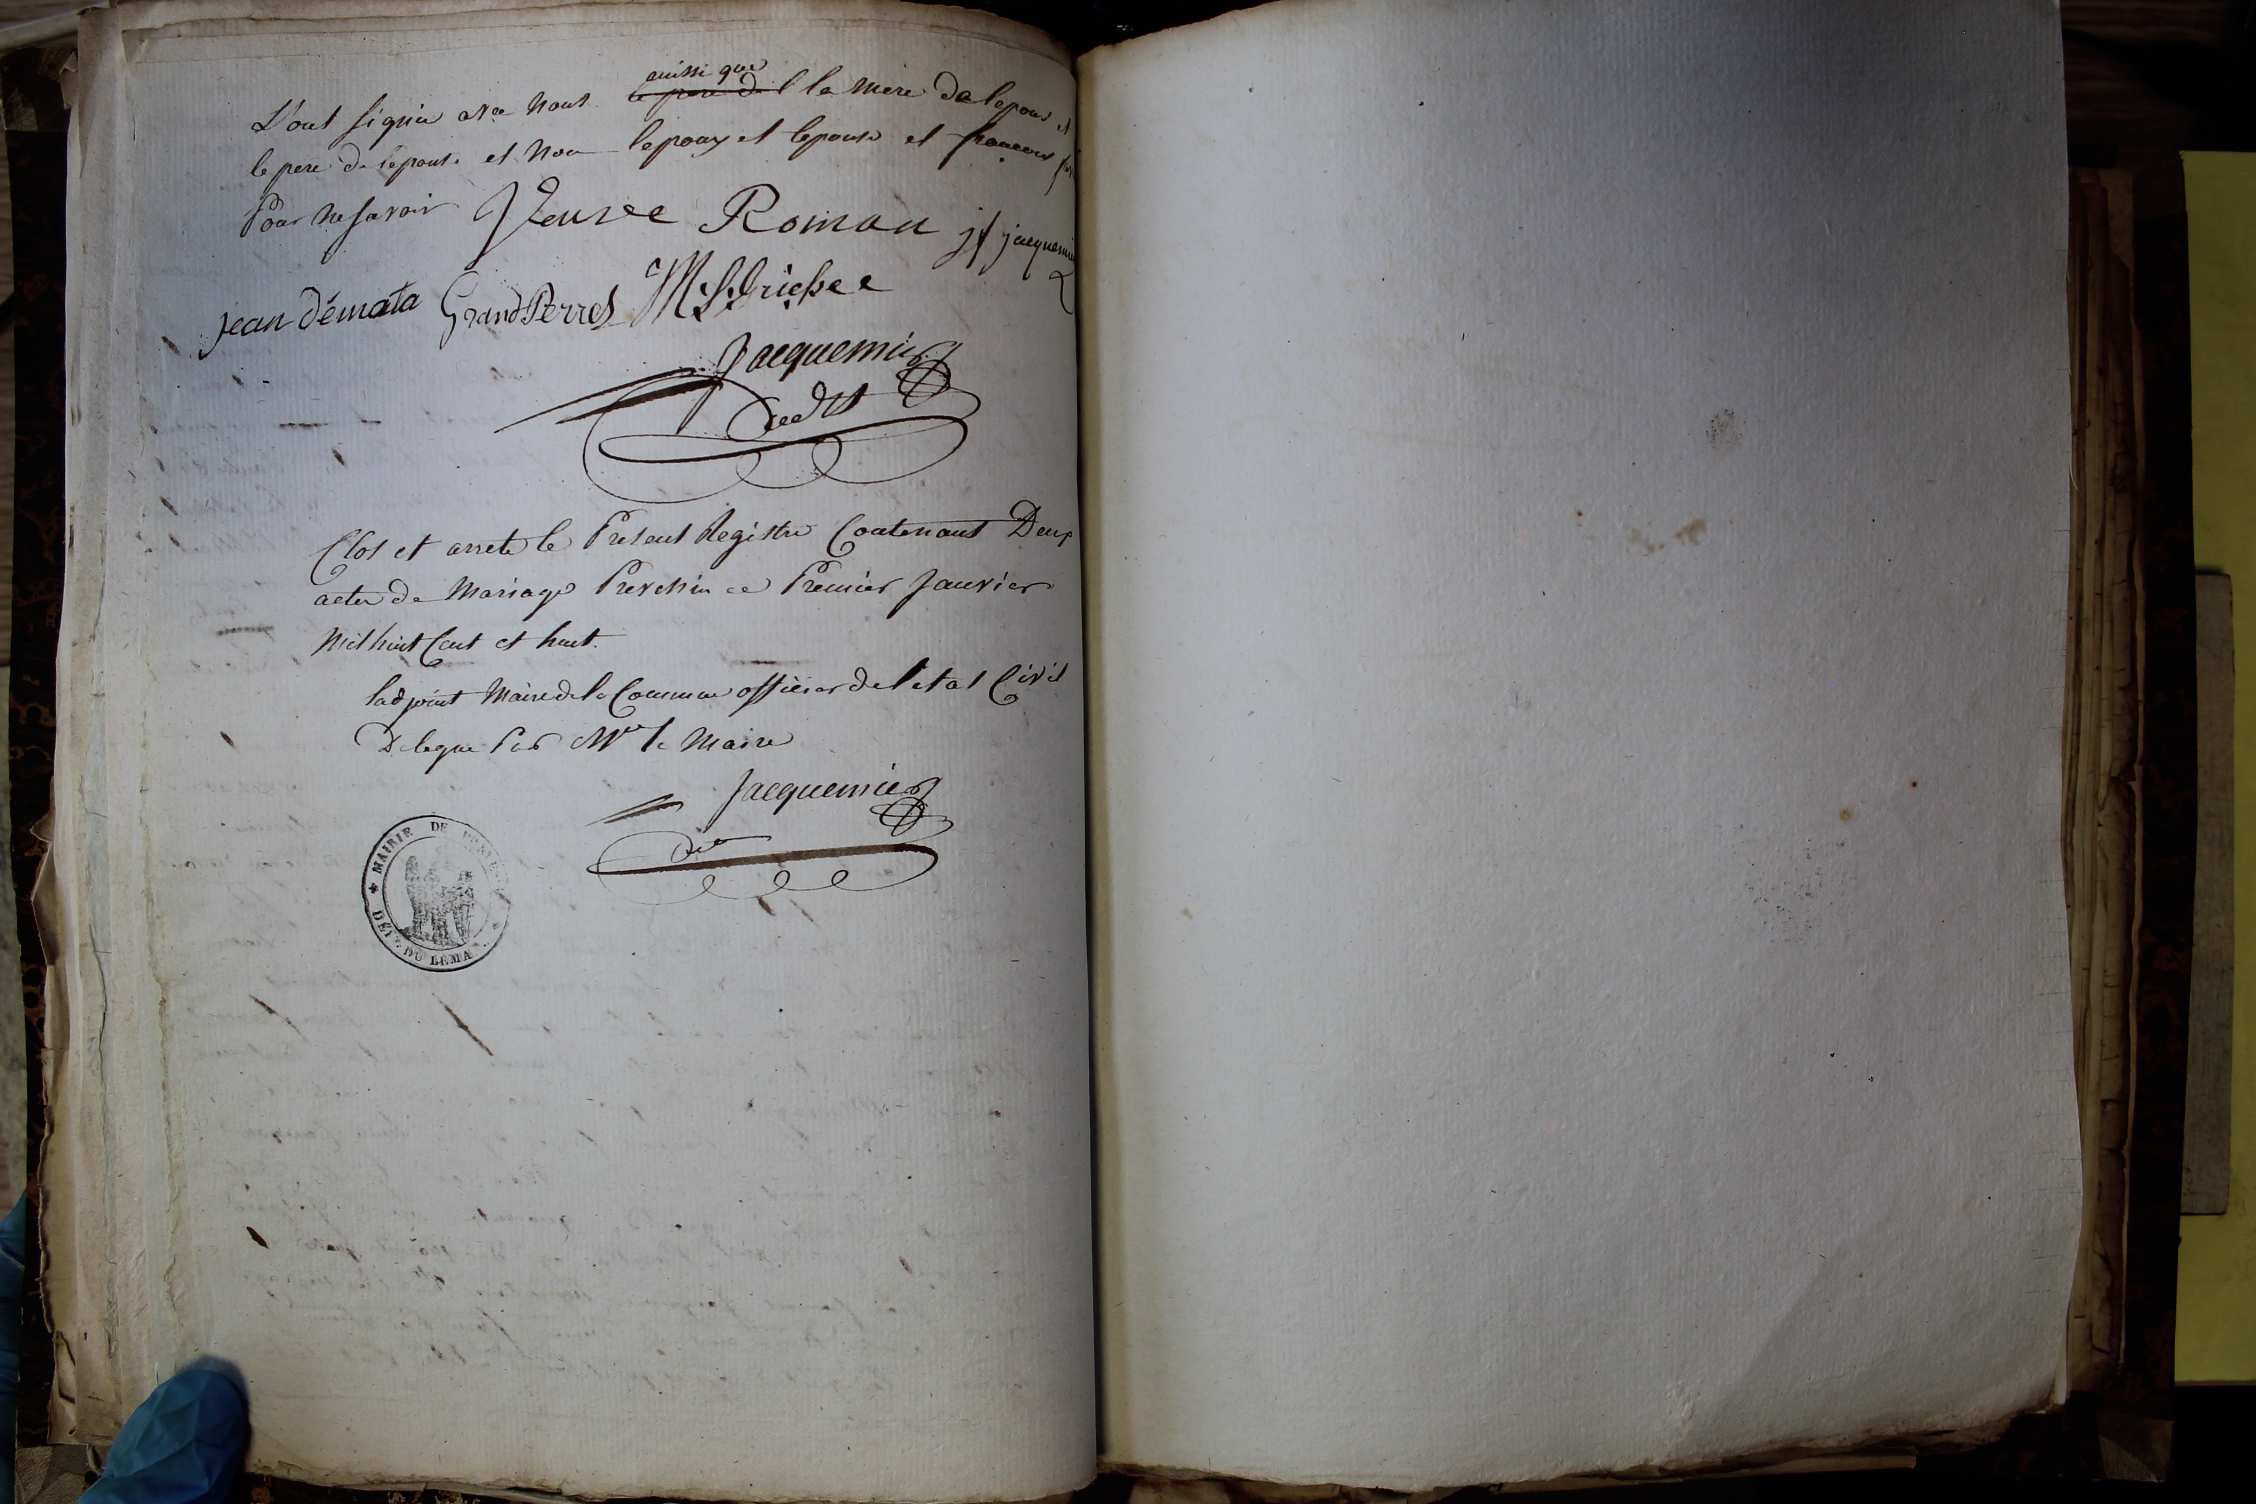 aussi que
L'ont signé avec nous le pere de l la mere de lepoux et
le pere de lepouse et non lepoux et lepouse et francois
Pour ne savoir Roman jf jacquemier
jean démata GrandPerret
Jacquemier
Clos et arrete le Present Registre Contenant Deux
actes de Mariage Prevessin ce Premier Janvier
Mil huit Cent et huit.
ladjoint Maire de la Commune officier de letat Civil
Delegue Par Mr le Maire
Jacquemier
MAIRIE DE
DEPT. DU LEMA